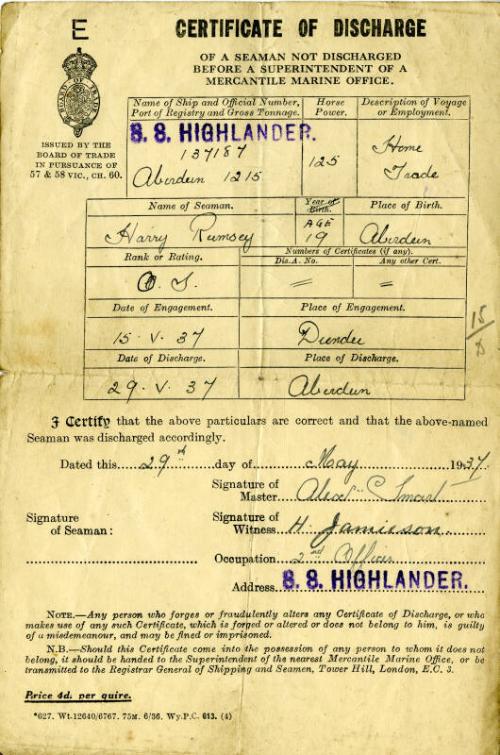 E
CERTIFICATE OF DISCHARGE
OF A SEAMAN NOT DISCHARGED
BEFORE A SUPERINTENDENT OF A
MERCANTILE MARINE OFFICE.
BOARD OF TRADE
ISSUED BY THE
BOARD OF TRADE
IN PURSUANCE OF
57 & 58 VIC., CH. 60.
Name of Ship and Official Number, Port of Registry and Gross Tonnage.
Horse Power.
Description of Voyage or Employment.
S. S. HIGHLANDER.
137187
Aberdeen 1215
125
Home
Trade
Name of Seaman.
Year of Birth.
AGE
Place of Birth.
Harry Rumsey
19
Aberdeen
Rank or Rating.
Numbers of Certificates (if any).
Dis. A. No.
Any other Cert.
O. S.
=
=
Date of Engagement.
Place of Engagement.
15 . V. 37
Dundee
Date of Discharge.
Place of Discharge.
29. V. 37
Aberdeen
15/
I Certify that the above particulars are correct and that the above-named
Seaman was discharged accordingly.
Dated this 29th day of May 1937
Signature of Master Alex C Smart
Signature of Seaman:
Signature of Witness H. Jamieson.
Occupation 2nd Officer
Address S. S. HIGHLANDER.
NOTE.—Any person who forges or fraudulently alters any Certificate of Discharge, or who
makes use of any such Certificate, which is forged or altered or does not belong to him, is guilty
of a misdemeanour, and may be fined or imprisoned.
N.B.—Should this Certificate come into the possession of any person to whom it does not
belong, it should be handed to the Superintendent of the nearest Mercantile Marine Office, or be
transmitted to the Registrar General of Shipping and Seamen, Tower Hill, London, E.C. 3.
Price 4d. per quire.
*627. Wt.12640/6767. 75M. 6/36. Wy.P.C. 613. (4)